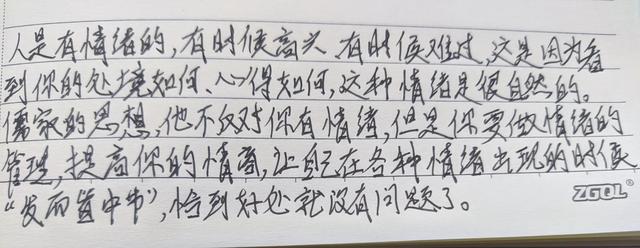 人是有情绪的，有时候高兴，有时候难过，这是因为看
到你的处境如何、心得如何，这种情绪是很自然的。
儒家的思想，他不反对你有情绪，但是你要做情绪的
管理，提高你的情商，让自己在各种情绪出现的时候
“发而皆中节”，恰到好处就没有问题了。
ZGQL